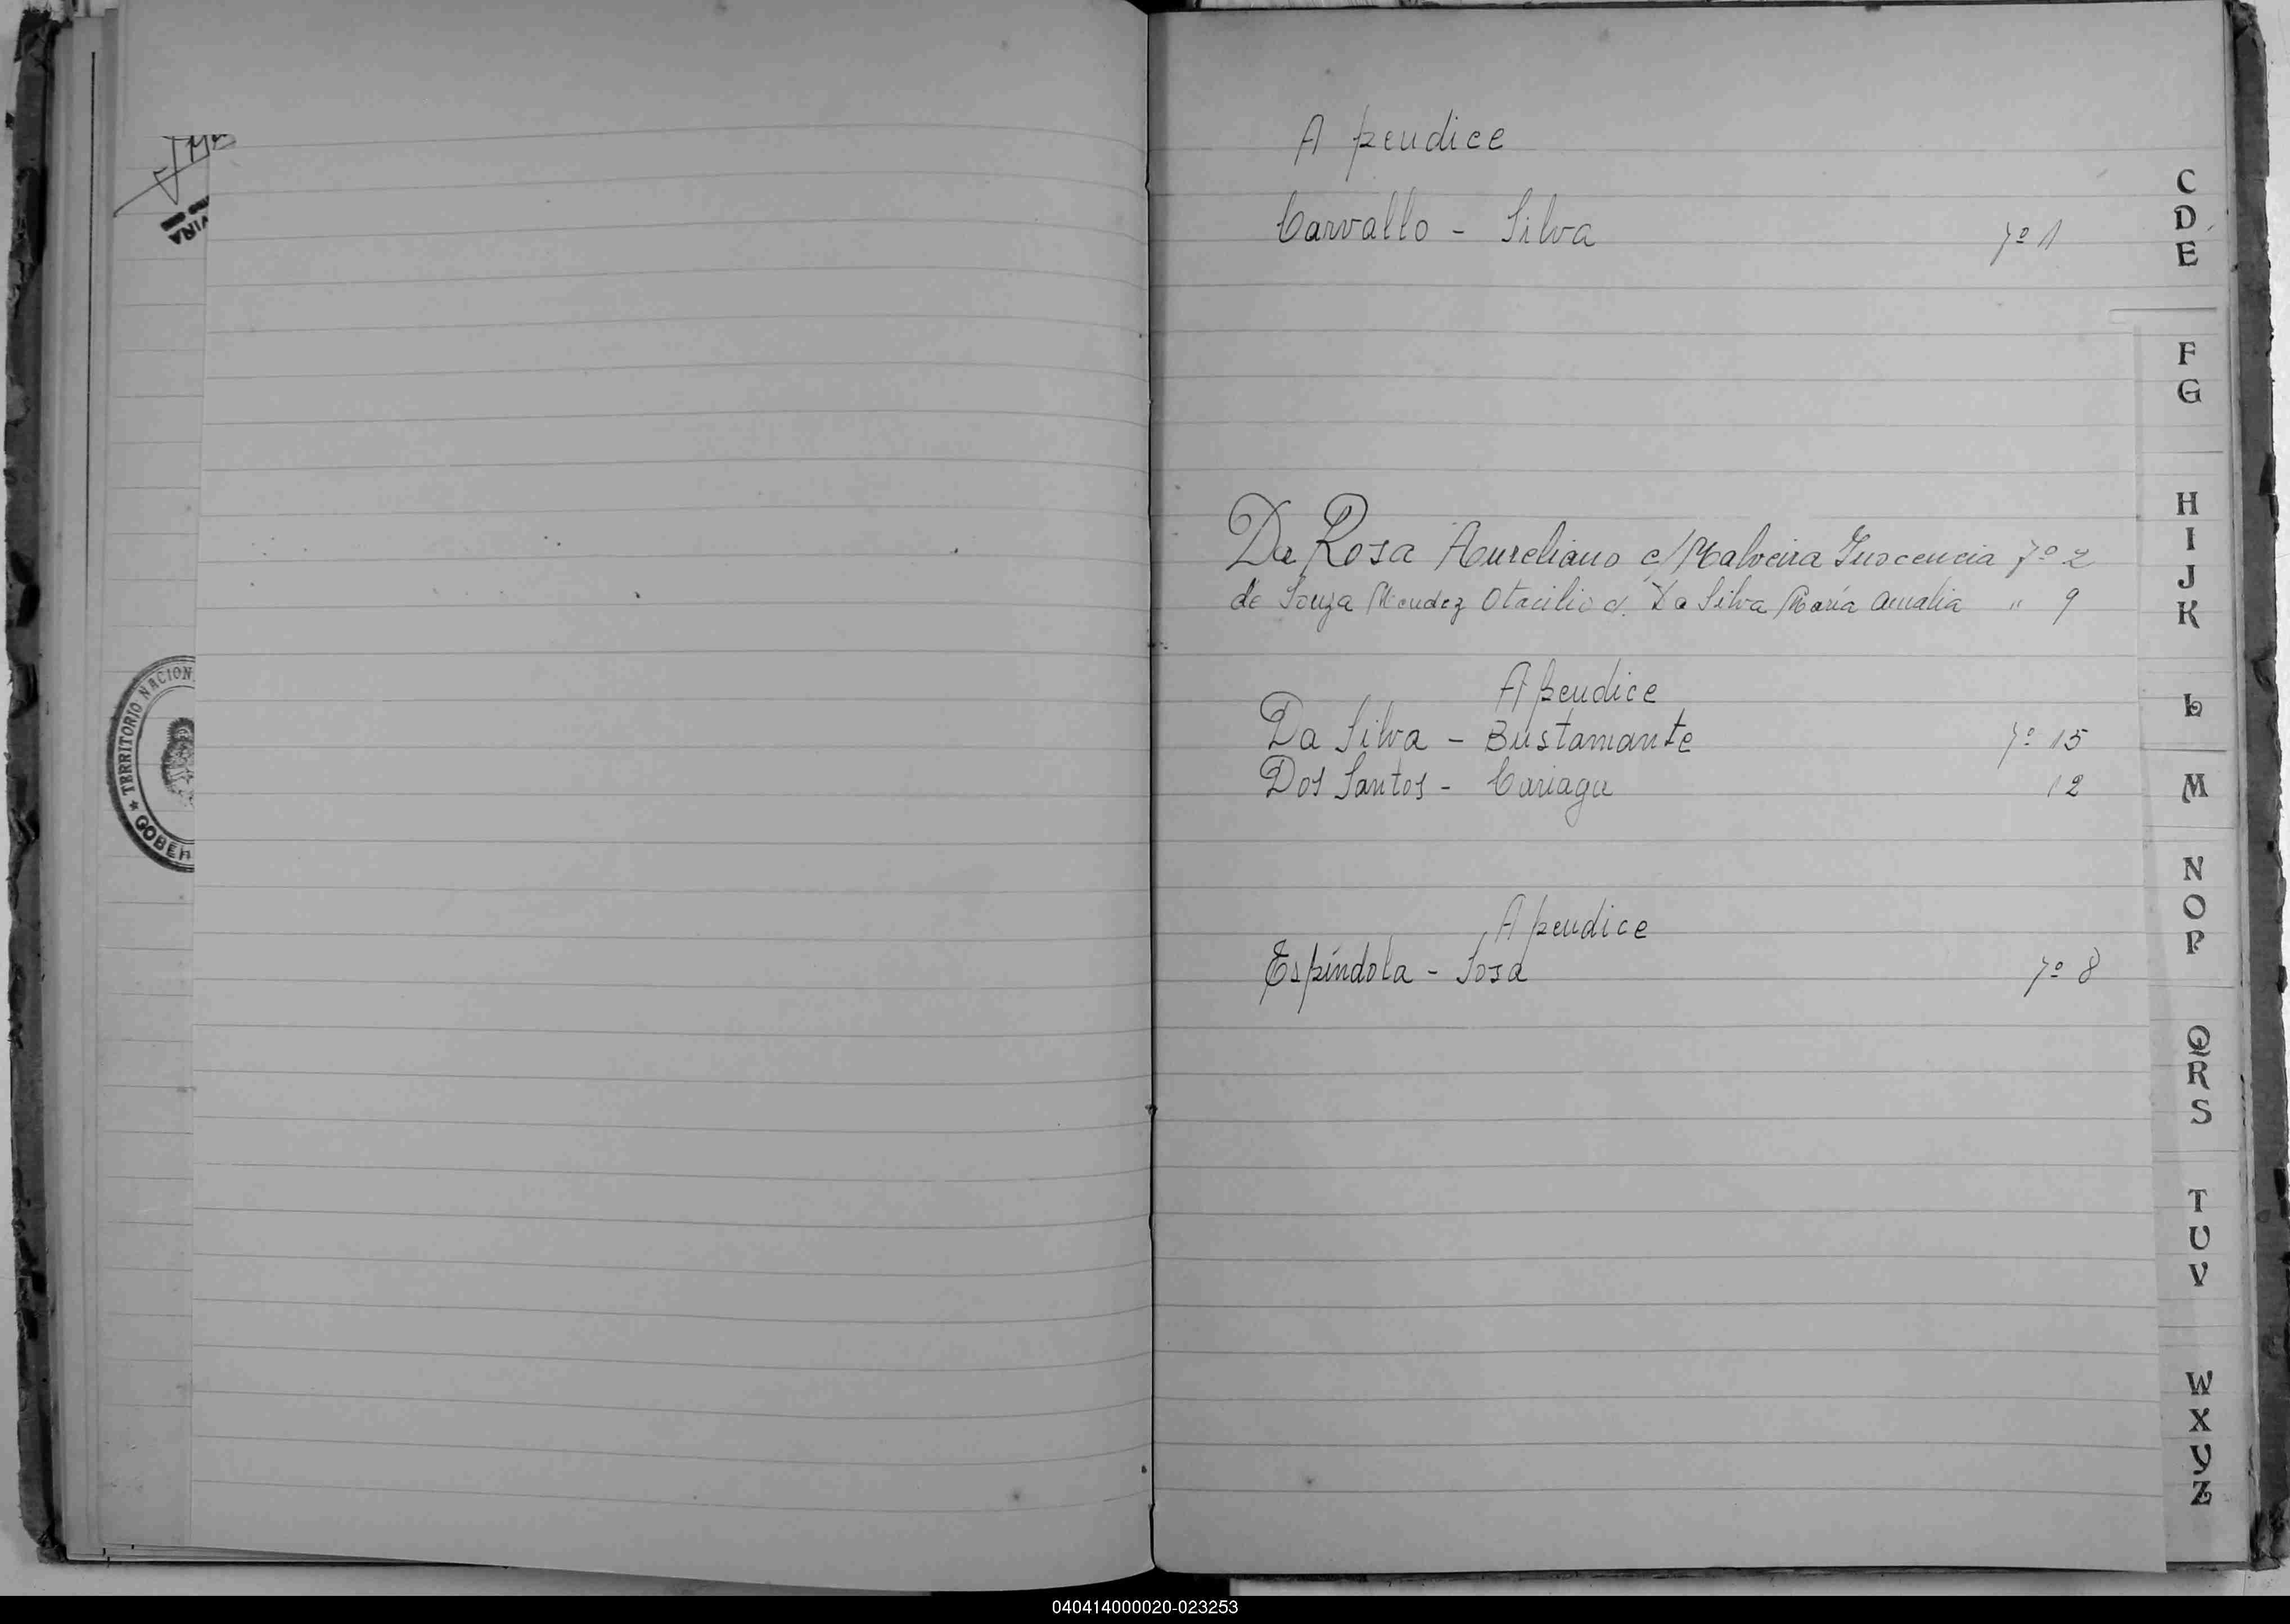 TERRITORIO NACION
GOBER
A pendice
Carvallo - Silva fº 1
Da Rosa Aureliano c/ Malveira Inocencia fº 2
de Souza Mendez Otacilio c. Da Silva María Amalia " 9
Apendice
Da Silva - Bustamante fº 15
Dos Santos - Cariaga 12
Apendice
Espíndola - Sosa fº 8
C
D
E
F
G
H
I
J
K
L
M
N
O
P
Q
R
S
T
U
V
W
X
Y
Z
040414000020-023253